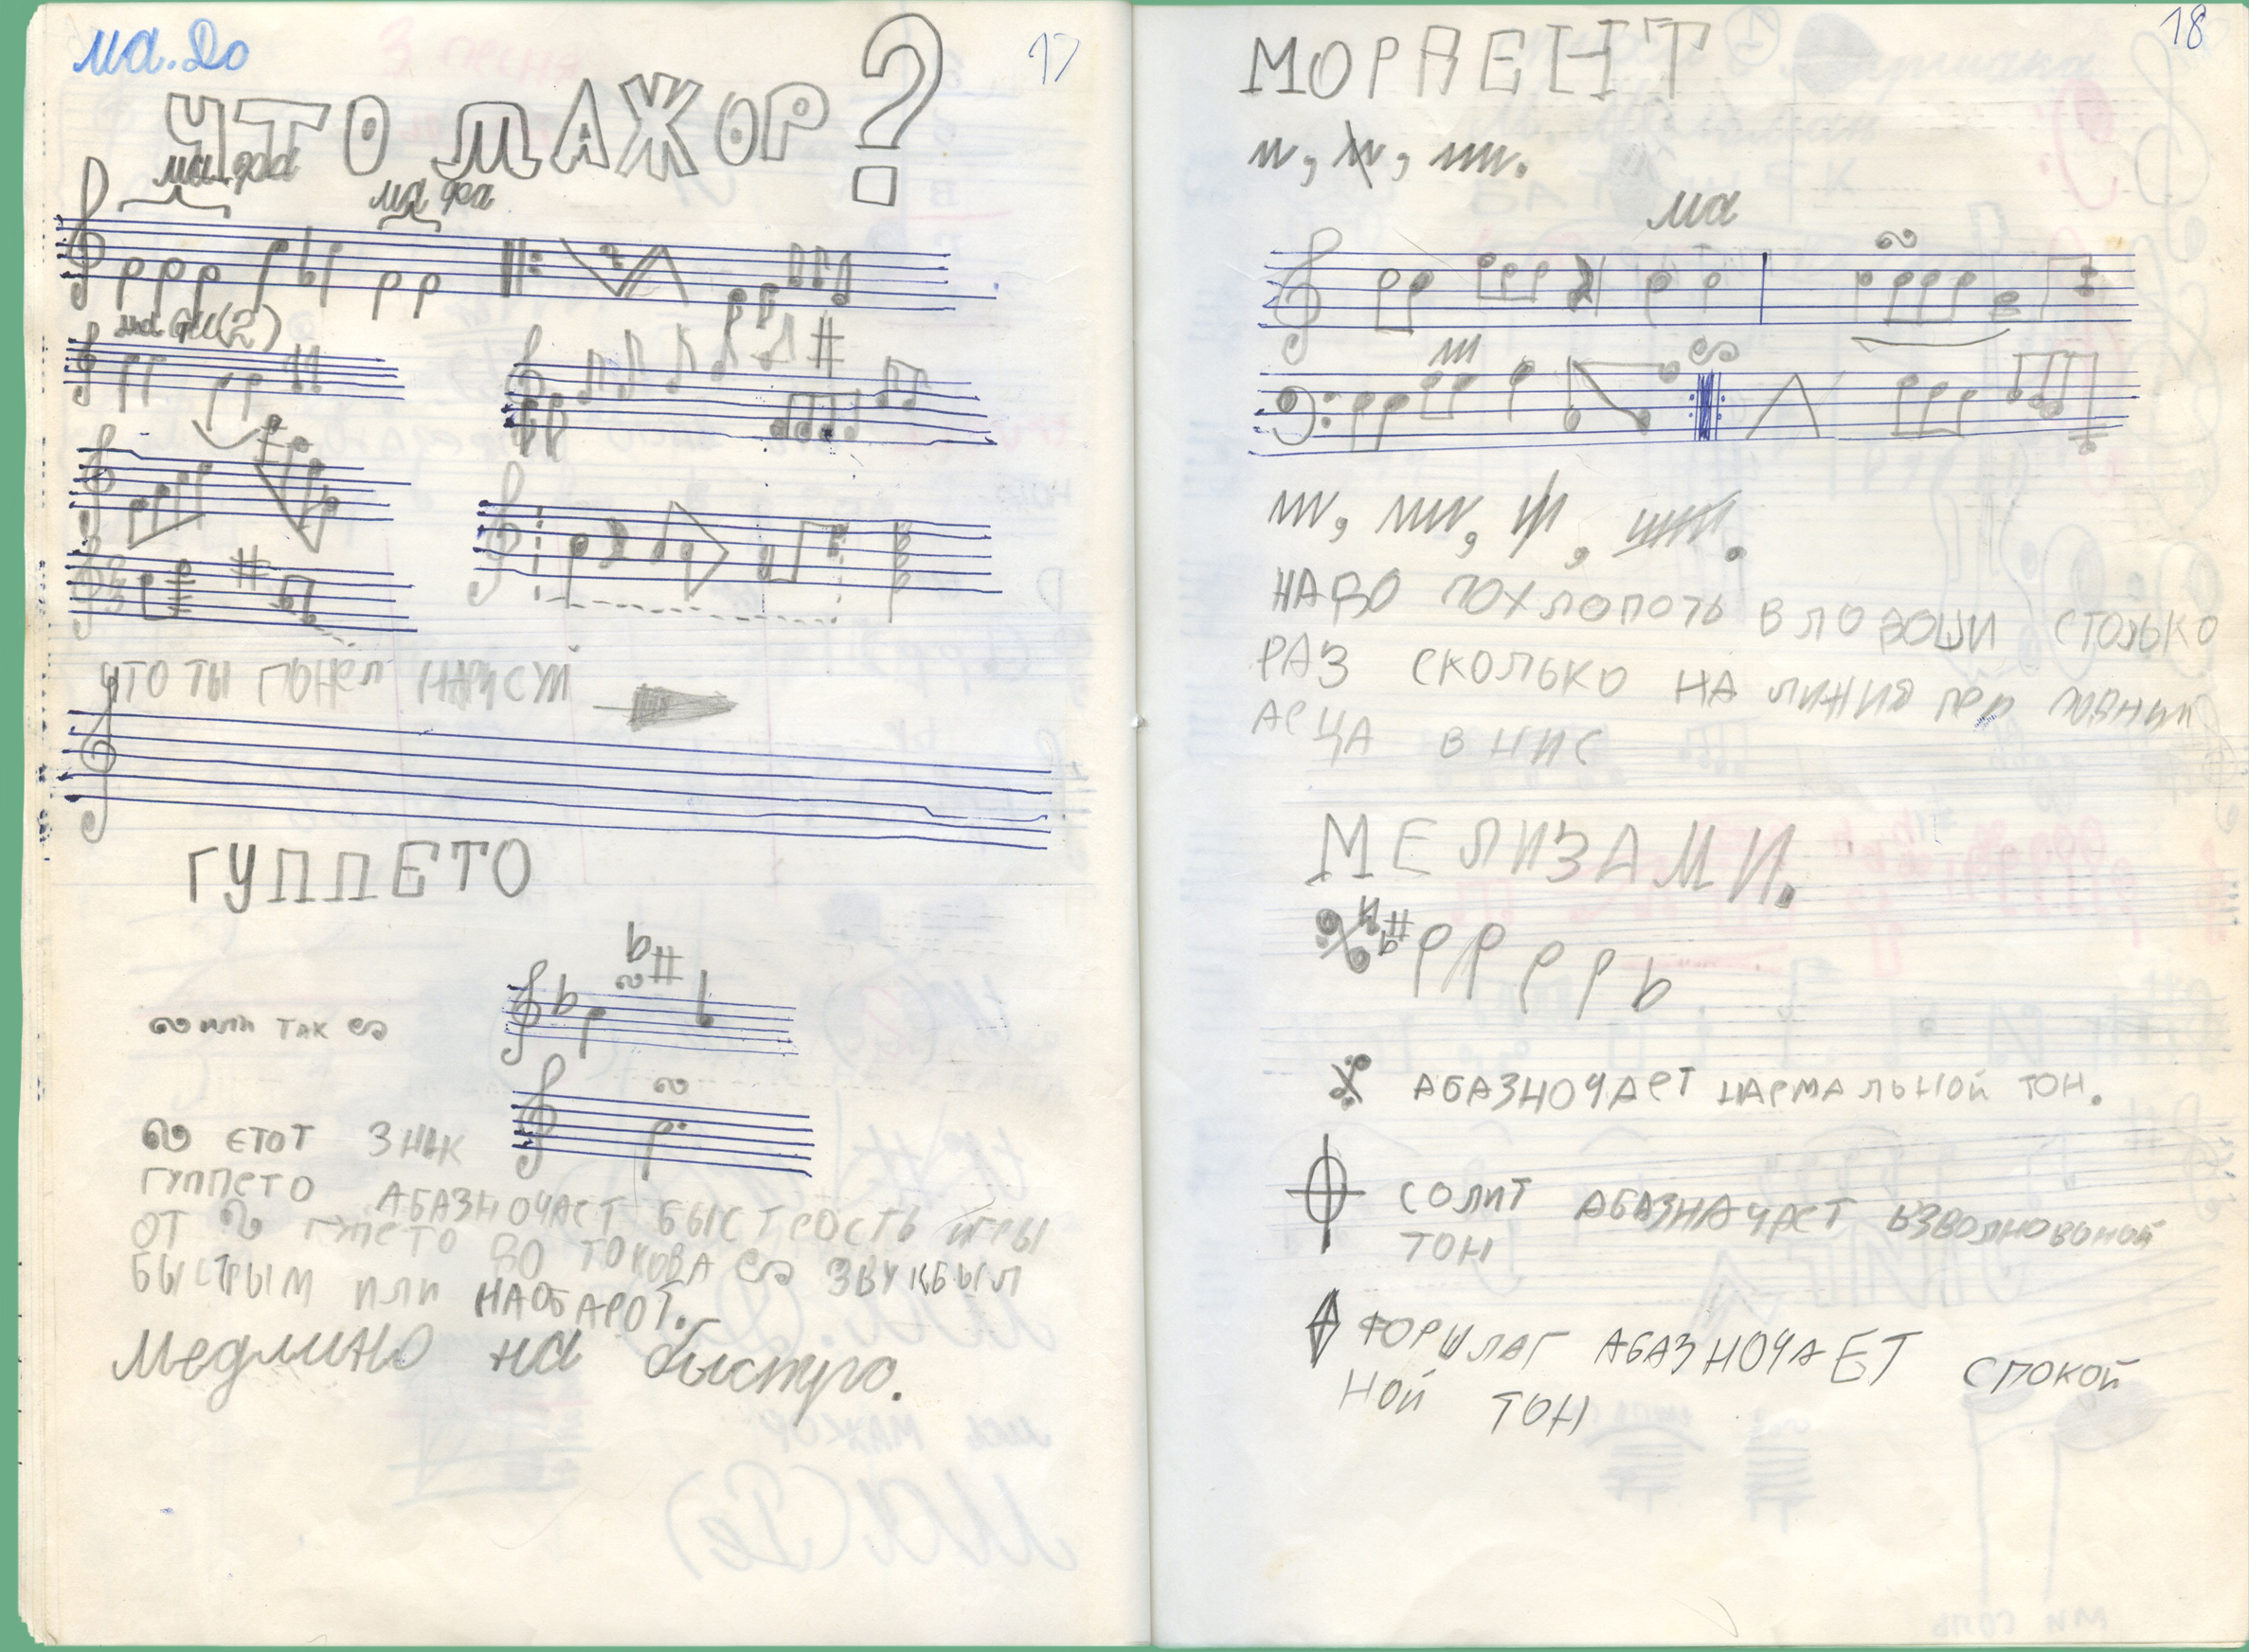 ма. До
17
ЧТО МАЖОР?
ма фа
ма фа
ма (2)
ЧТО ТЫ ПОНЕЛ НАРИСУЙ
ГУППЕТО
или так
ЕТОТ ЗНАК
ГУППЕТО АБАЗНОЧАЕТ БЫСТРОСТЬ ИГРЫ
ОТ ГУПЕТО ДО ТОКОВА ЗВУК БЫЛ
БЫСТРЫМ ИЛИ НАОБАРОТ.
Медлино на быстро.
18
МОРДЕНТ
ма
НАДО ПОХЛОПОТЬ В ЛОДОШИ СТОЛЬКО
РАЗ СКОЛЬКО НА ЛИНИЯ
В НИС
МЕЛИЗАМИ.
АБАЗНОЧАЕТ НАРМАЛЬНОЙ ТОН.
СОЛИТ АБАЗНАЧАЕТ ВЗВОЛНОВОНОЙ
ТОН
ФОРШЛАГ АБАЗНОЧАЕТ СПОКОЙ
НОЙ ТОН